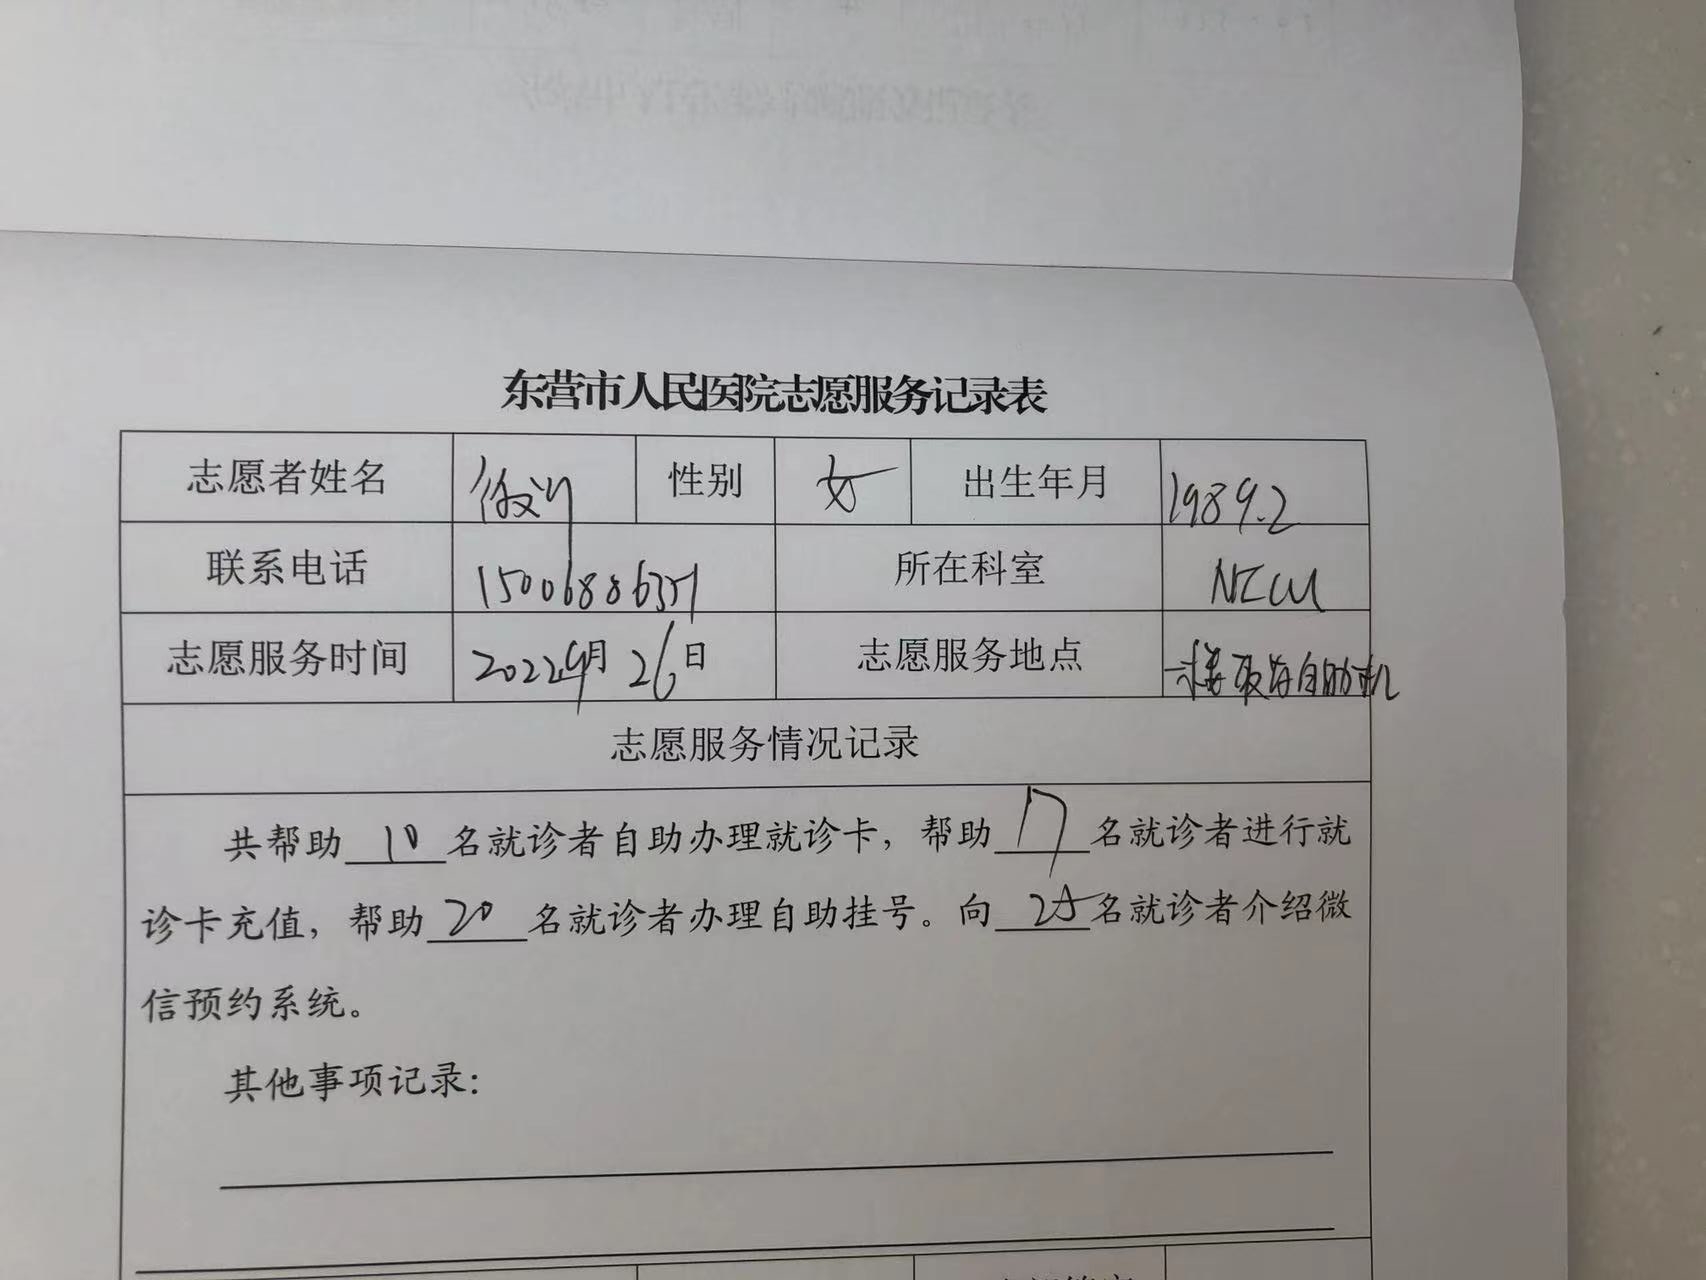 东营市人民医院志愿服务记录表
志愿者姓名 性别 女 出生年月 1989.2
联系电话 所在科室 NICU
志愿服务时间 2022年9月26日 志愿服务地点 一楼 自助机
志愿服务情况记录
共帮助 10 名就诊者自助办理就诊卡，帮助 17 名就诊者进行就
诊卡充值，帮助 20 名就诊者办理自助挂号。向 25 名就诊者介绍微
信预约系统。
其他事项记录：